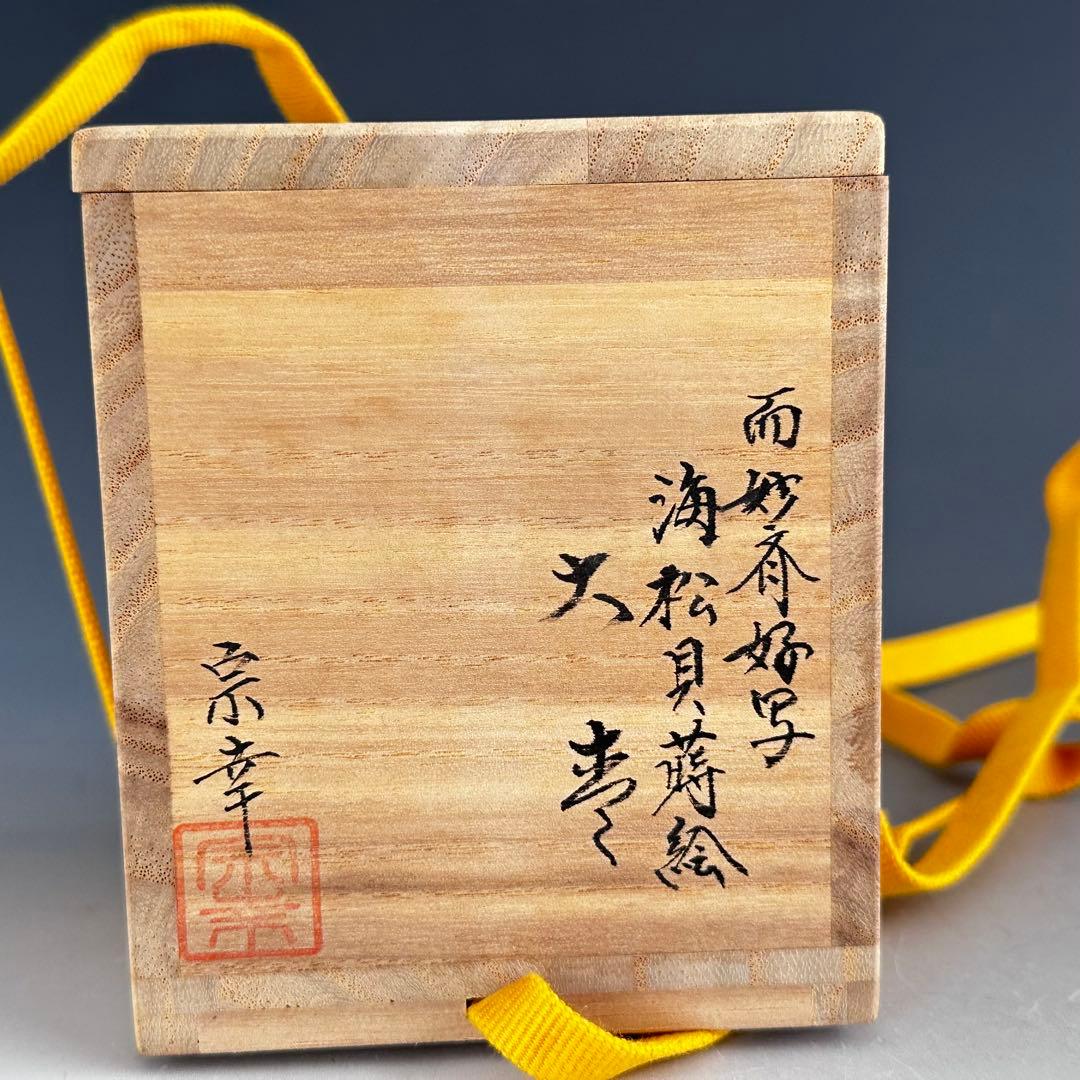 而妙斎好写
海松貝蒔絵
大棗
宗幸